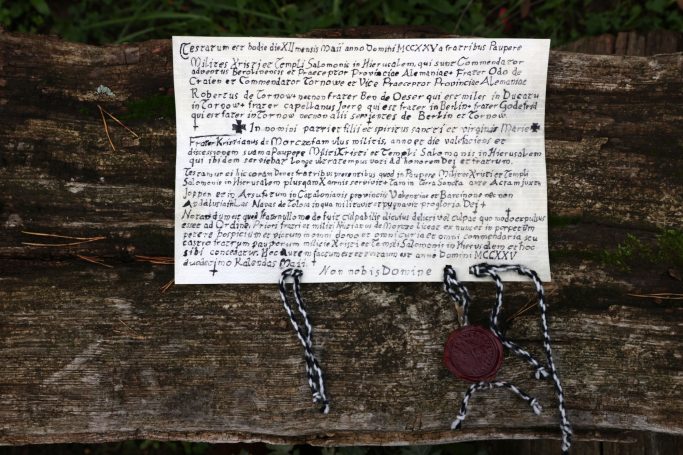 Testatum est hodie die XII mensis Maii anno Domini MCCXXV a fratribus Paupere
Milites Xristi et Templi Salomonis in Hierusalem, qui sunt Commendator
adventus Berolinensis et Praeceptor Provinciae Alemaniae Frater Odo de
et Commendator Tornowe et Vice Praeceptor Provinciae Alemaniae
Robertus de Tornow necnon frater Ben de Oeser qui est miler in Ducatu
in Torgow frater capellanus Joerg qui est frater in Berlin frater Godefrid
qui est frater in Tornow necnon alii serjentes de Berlin et Tornow
In nomini patri et filii et spiritus sancti et virginis Marie
Frater Kristianus di vulus militis, anno et die
sudma Paupere Militi Xristi et Templi Salomonis in Hierusalem
qui ibidem serviebat longe ultra tempus voti ad honorem Dei et fratrum.
Testamur ei hic coram Deo et fratribus presentibus quod in Paupere Militie Xristi et Templi
Salomonis in Hierusalem plusquam X annis servivit tam in terra Sancta ante Actam juxta
Joppen et in Arsufutum in Catalomanis provinciis Valentiae et Barcinone necnon
Andalusia in Las Navas de Tolosa in qua militavit et pugnavit pro gloria Dei
Notandum est quod fratre nullo mo de fuit culpabilis alicuius delicti vel culpae quo modo expulsus
esset ad Ordine. Priori fratri et militi
petere hospicium et victum in omni domo et omni curia et omni commendaria seu
castro fratrum pauperum milicie Xristi et Templi Salomonis in Hierusalem et hoc
sibi concedatur. Hec autem factum est et iuratum est anno Domini MCCXXV
duodecimo Kalendas Maii
Non nobis Domine